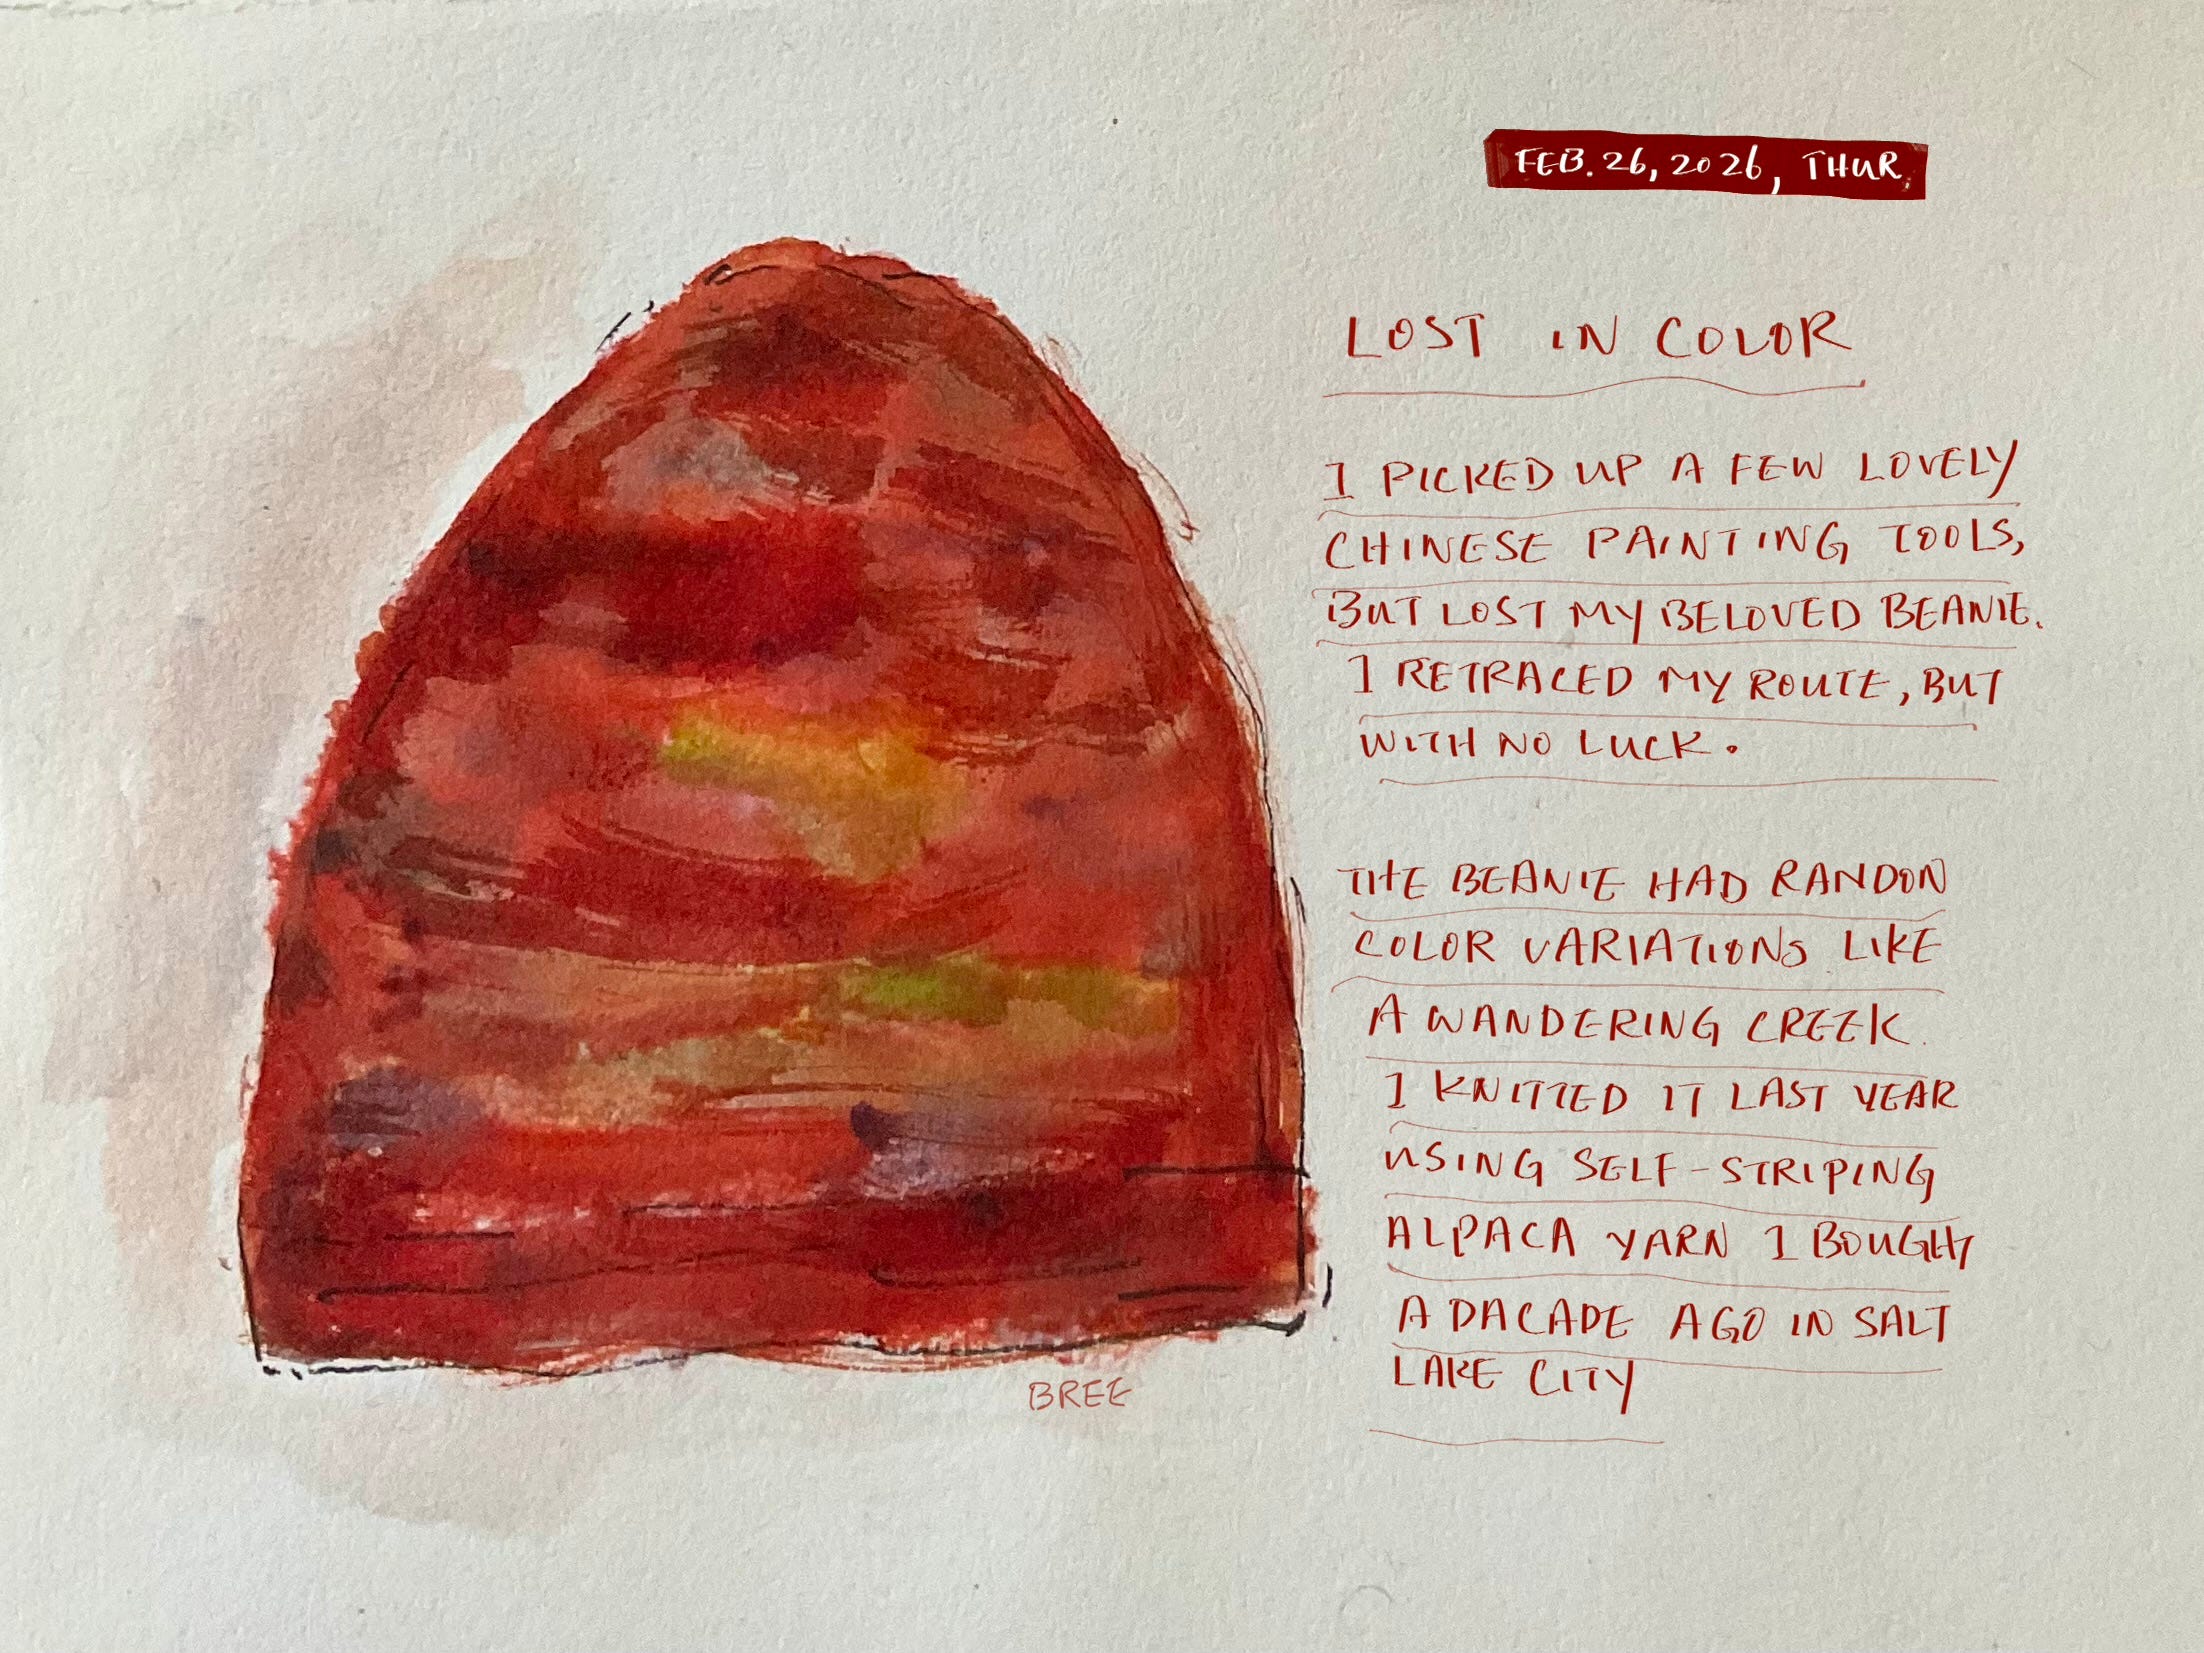 FEB. 26, 2026, THUR.
LOST IN COLOR
I PICKED UP A FEW LOVELY
CHINESE PAINTING TOOLS,
BUT LOST MY BELOVED BEANIE.
I RETRACED MY ROUTE, BUT
WITH NO LUCK.
THE BEANIE HAD RANDON
COLOR VARIATIONS LIKE
A WANDERING CREEK.
I KNITTED IT LAST YEAR
USING SELF-STRIPING
ALPACA YARN I BOUGHT
A DACADE AGO IN SALT
LAKE CITY
BREE